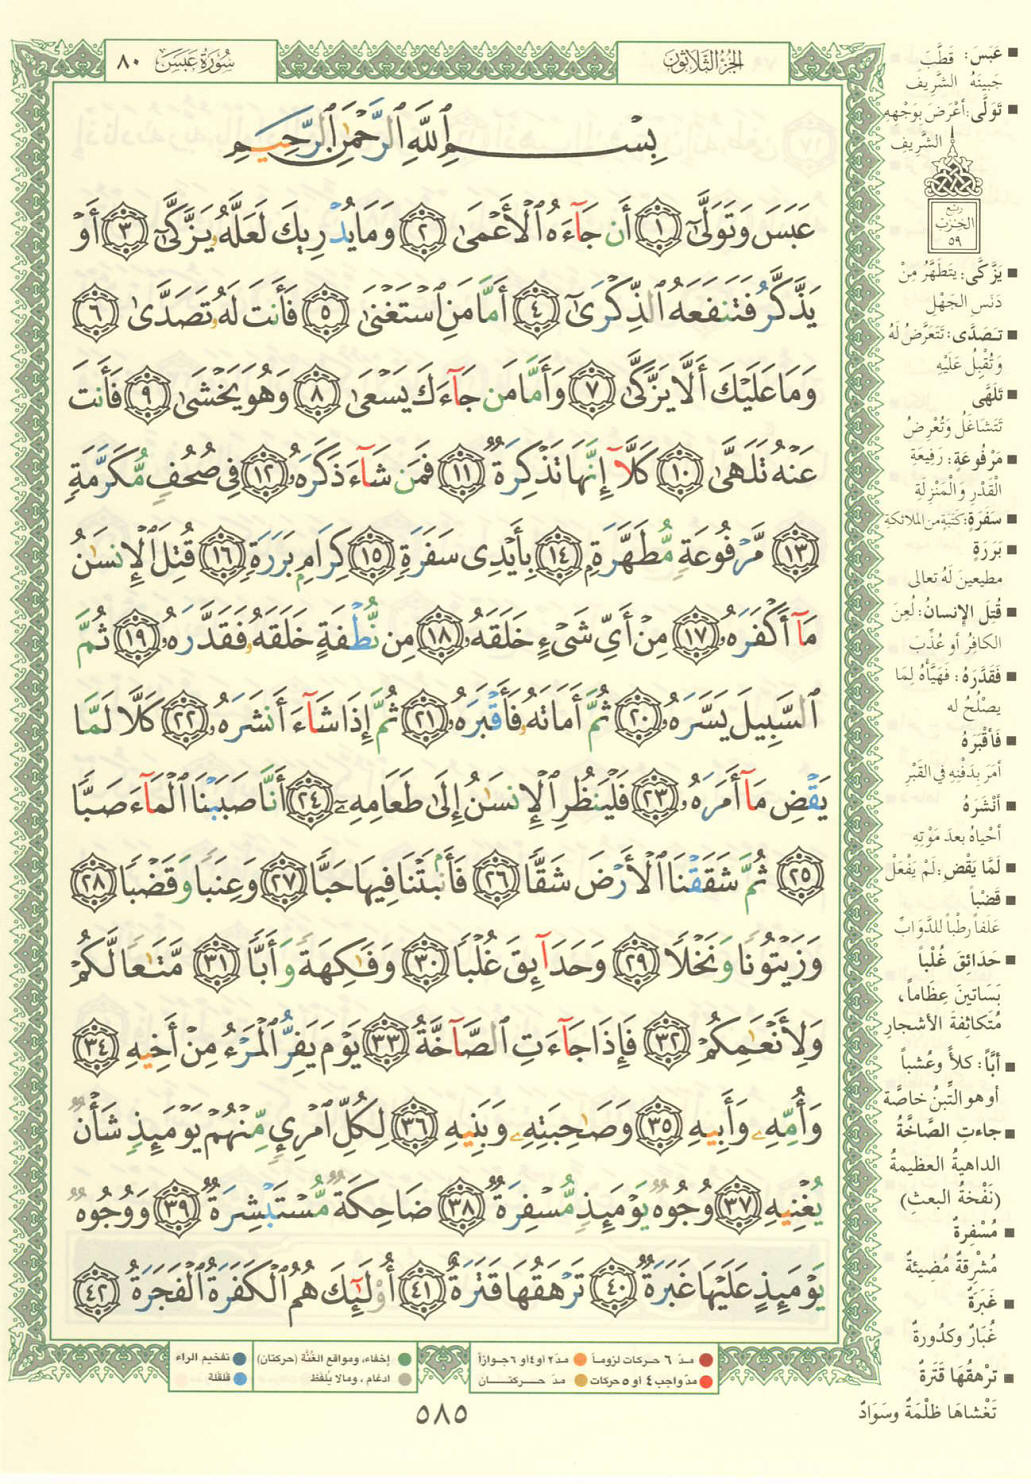 سُورَةُ عَبَسَ ٨٠
الجُزءُ الثَّلَاثُونَ
بِسْمِ ٱللَّهِ ٱلرَّحْمَٰنِ ٱلرَّحِيمِ
عَبَسَ وَتَوَلَّىٰٓ ١ أَن جَآءَهُ ٱلْأَعْمَىٰ ٢ وَمَا يُدْرِيكَ لَعَلَّهُۥ يَزَّكَّىٰٓ ٣ أَوْ
يَذَّكَّرُ فَتَنفَعَهُ ٱلذِّكْرَىٰٓ ٤ أَمَّا مَنِ ٱسْتَغْنَىٰ ٥ فَأَنتَ لَهُۥ تَصَدَّىٰ ٦
وَمَا عَلَيْكَ أَلَّا يَزَّكَّىٰ ٧ وَأَمَّا مَن جَآءَكَ يَسْعَىٰ ٨ وَهُوَ يَخْشَىٰ ٩ فَأَنتَ
عَنْهُ تَلَهَّىٰ ١٠ كَلَّآ إِنَّهَا تَذْكِرَةٌ ١١ فَمَن شَآءَ ذَكَرَهُۥ ١٢ فِى صُحُفٍ مُّكَرَّمَةٍ
١٣ مَّرْفُوعَةٍ مُّطَهَّرَةٍۭ ١٤ بِأَيْدِى سَفَرَةٍ ١٥ كِرَامٍۭ بَرَرَةٍ ١٦ قُتِلَ ٱلْإِنسَٰنُ
مَآ أَكْفَرَهُۥ ١٧ مِنْ أَىِّ شَىْءٍ خَلَقَهُۥ ١٨ مِن نُّطْفَةٍ خَلَقَهُۥ فَقَدَّرَهُۥ ١٩ ثُمَّ
ٱلسَّبِيلَ يَسَّرَهُۥ ٢٠ ثُمَّ أَمَاتَهُۥ فَأَقْبَرَهُۥ ٢١ ثُمَّ إِذَا شَآءَ أَنشَرَهُۥ ٢٢ كَلَّا لَمَّا
يَقْضِ مَآ أَمَرَهُۥ ٢٣ فَلْيَنظُرِ ٱلْإِنسَٰنُ إِلَىٰ طَعَامِهِۦٓ ٢٤ أَنَّا صَبَبْنَا ٱلْمَآءَ صَبًّا
٢٥ ثُمَّ شَقَقْنَا ٱلْأَرْضَ شَقًّا ٢٦ فَأَنۢبَتْنَا فِيهَا حَبًّا ٢٧ وَعِنَبًا وَقَضْبًا ٢٨
وَزَيْتُونًا وَنَخْلًا ٢٩ وَحَدَآئِقَ غُلْبًا ٣٠ وَفَٰكِهَةً وَأَبًّا ٣١ مَّتَٰعًا لَّكُمْ
وَلِأَنْعَٰمِكُمْ ٣٢ فَإِذَا جَآءَتِ ٱلصَّآخَّةُ ٣٣ يَوْمَ يَفِرُّ ٱلْمَرْءُ مِنْ أَخِيهِ ٣٤
وَأُمِّهِۦ وَأَبِيهِ ٣٥ وَصَٰحِبَتِهِۦ وَبَنِيهِ ٣٦ لِكُلِّ ٱمْرِئٍ مِّنْهُمْ يَوْمَئِذٍ شَأْنٌ
يُغْنِيهِ ٣٧ وُجُوهٌ يَوْمَئِذٍ مُّسْفِرَةٌ ٣٨ ضَاحِكَةٌ مُّسْتَبْشِرَةٌ ٣٩ وَوُجُوهٌ
يَوْمَئِذٍ عَلَيْهَا غَبَرَةٌ ٤٠ تَرْهَقُهَا قَتَرَةٌ ٤١ أُو۟لَٰٓئِكَ هُمُ ٱلْكَفَرَةُ ٱلْفَجَرَةُ ٤٢
■ عَبَسَ: قَطَّبَ
جَبينَهُ الشَّرِيف
■ تَوَلَّى: أعْرَضَ بوَجْهِهِ
الشَّرِيف
ربع
الحزب
٥٩
■ يَزَّكَّى: يتَطهَّرُ مِنْ
دَنَسِ الجَهْل
■ تَصَدَّى: تَتَعَرَّضُ لَهُ
وَتُقْبِلُ عَلَيْهِ
■ تَلَهَّى
تَتَشَاغَلُ وَتُعْرِضُ
■ مَرْفُوعَة: رَفِيعَةِ
القَدْرِ وَالْمَنْزِلَةِ
■ سَفَرَةٍ: كَتَبَةٍ من الملائكةِ
■ بَرَرَةٍ
مطيعينَ لَهُ تعالى
■ قُتِلَ الإنسانُ: لُعِنَ
الكافِرُ أو عُذِّبَ
■ فَقَدَّرَهُ: فَهَيَّأَهُ لِمَا
يصْلُحُ له
■ فَأقْبَرَهُ
أمَرَ بِدَفْنِهِ في القَبْرِ
■ أنْشَرَهُ
أحْياهُ بعدَ مَوْتِهِ
■ لَمَّا يَقْضِ: لَمْ يَفْعَلْ
■ قَضْباً
عَلَفاً رطْباً للدَّوابِّ
■ حَدَائِقَ غُلْباً
بَسَاتينَ عِظَاماً،
مُتَكاثِفةَ الأشجارِ
■ أبَّا: كلأً وعُشباً
أو هو التِّبنُ خاصَّة
■ جاءتِ الصَّاخَّةُ
الداهيةُ العظيمةُ
(نَفْخةُ البعثِ)
■ مُسْفِرةٌ
مُشْرِقةٌ مُضِيئةٌ
■ غَبَرَةٌ
غُبَارٌ وكدُورةٌ
■ تَرْهقُهَا قَتَرَةٌ
تَغْشاهَا ظلْمَةٌ وسَوَادٌ
مدّ ٦ حركات لزوماً
مدّ ٢ أو ٤ أو ٦ جوازاً
مدّ واجب ٤ أو ٥ حركات
مدّ حركتان
إخفاء، ومواقع الغُنَّة (حركتان)
ادغام، ومالا يُلفظ
تفخيم الراء
قلقلة
٥٨٥